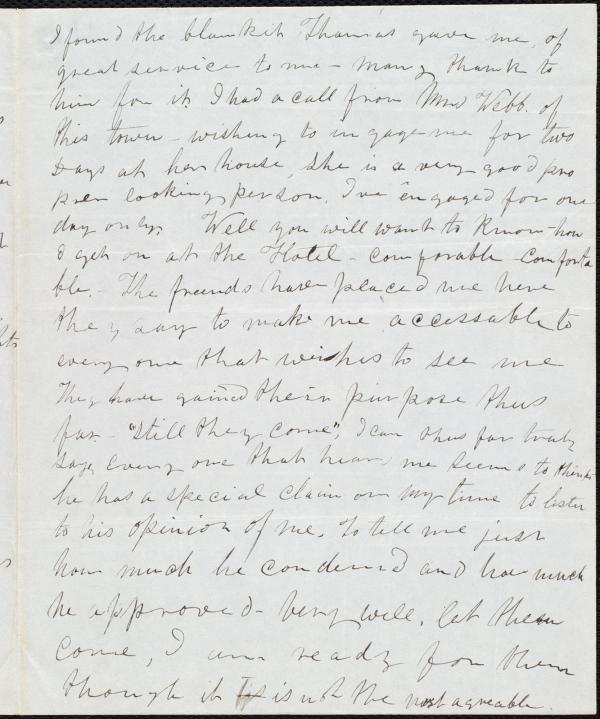 I found the blankit Thomas gave me, of
great service to me - many thanks to
him for it. I had a call from Mrs Webb. of
this town - wishing to ingage me for two
Days at her house, She is a very good pro
per looking person, I've engaged for one
day only. Well you will want to know how
I get on at the Hotel - comforable - comforta
ble. - The freends have placed me here
they say to make me accessable to
every one that wishes to see me
They have gained their purpose thus
far - "still they come", I can thus far truly
say, every one that hears me seems to think
he has a special claim on my time to listen
to his opinion of me. To tell me just
how much he condemed and how much
he approved - Very well, let them
come, I am ready for them
though it is not the most agreable.